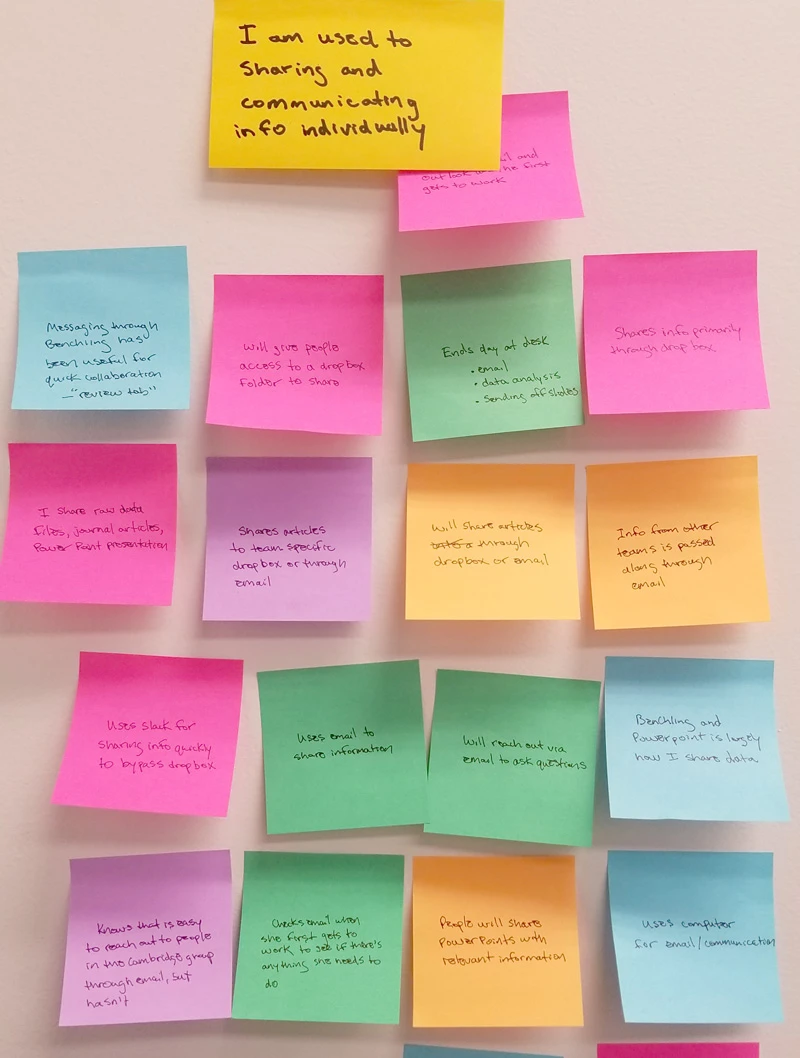 I am used to
sharing and
communicating
info individually
and
outlook
he first
gets to work
Messaging through
Benchling has
been useful for
quick collaboration
– "review tab"
Will give people
access to a dropbox
folder to share
Ends day at desk
• email
• data analysis
• sending off slides
Shares info primarily
through dropbox
I share raw data
files, journal articles,
Power Point presentation
Shares articles
to team specific
dropbox or through
email
Will share articles
through
dropbox or email
Info from other
teams is passed
along through
email
Uses slack for
sharing info quickly
to bypass dropbox
Uses email to
share information
Will reach out via
email to ask questions
Benchling and
Powerpoint is largely
how I share data
Knows that is easy
to reach out to people
in the Cambridge group
through email, but
hasn't
Checks email when
she first gets to
work to see if there's
anything she needs to
do
People will share
PowerPoints with
relevant information
Uses computer
for email/communication